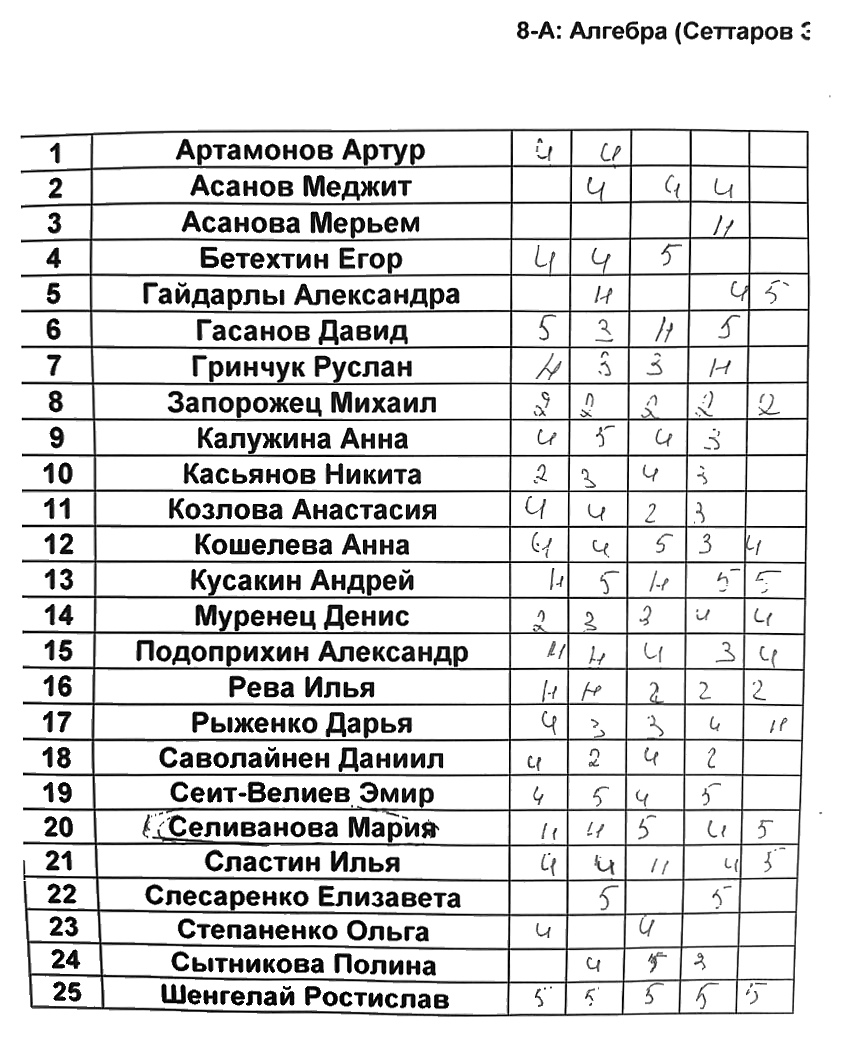 8-А: Алгебра (Сеттаров Э
1 Артамонов Артур 4 4
2 Асанов Меджит 4 4 4
3 Асанова Мерьем Н
4 Бетехтин Егор 4 4 5
5 Гайдарлы Александра Н 4 5
6 Гасанов Давид 5 3 Н 5
7 Гринчук Руслан Н 3 3 Н
8 Запорожец Михаил 2 2 2 2 2
9 Калужина Анна 4 5 4 3
10 Касьянов Никита 2 3 4 3
11 Козлова Анастасия 4 4 2 3
12 Кошелева Анна 4 5 3 4
13 Кусакин Андрей Н 5 Н 5 5
14 Муренец Денис 2 3 3 4 4
15 Подоприхин Александр Н Н 4 3 4
16 Рева Илья Н Н 2 2 2
17 Рыженко Дарья 4 3 3 4 Н
18 Саволайнен Даниил 4 2 4 2
19 Сеит-Велиев Эмир 4 5 4 5
20 Селиванова Мария Н Н 5 4 5
21 Сластин Илья 4 4 Н 4 5
22 Слесаренко Елизавета 5 5
23 Степаненко Ольга 4 4
24 Сытникова Полина 4 3
25 Шенгелай Ростислав 5 5 5 5 5